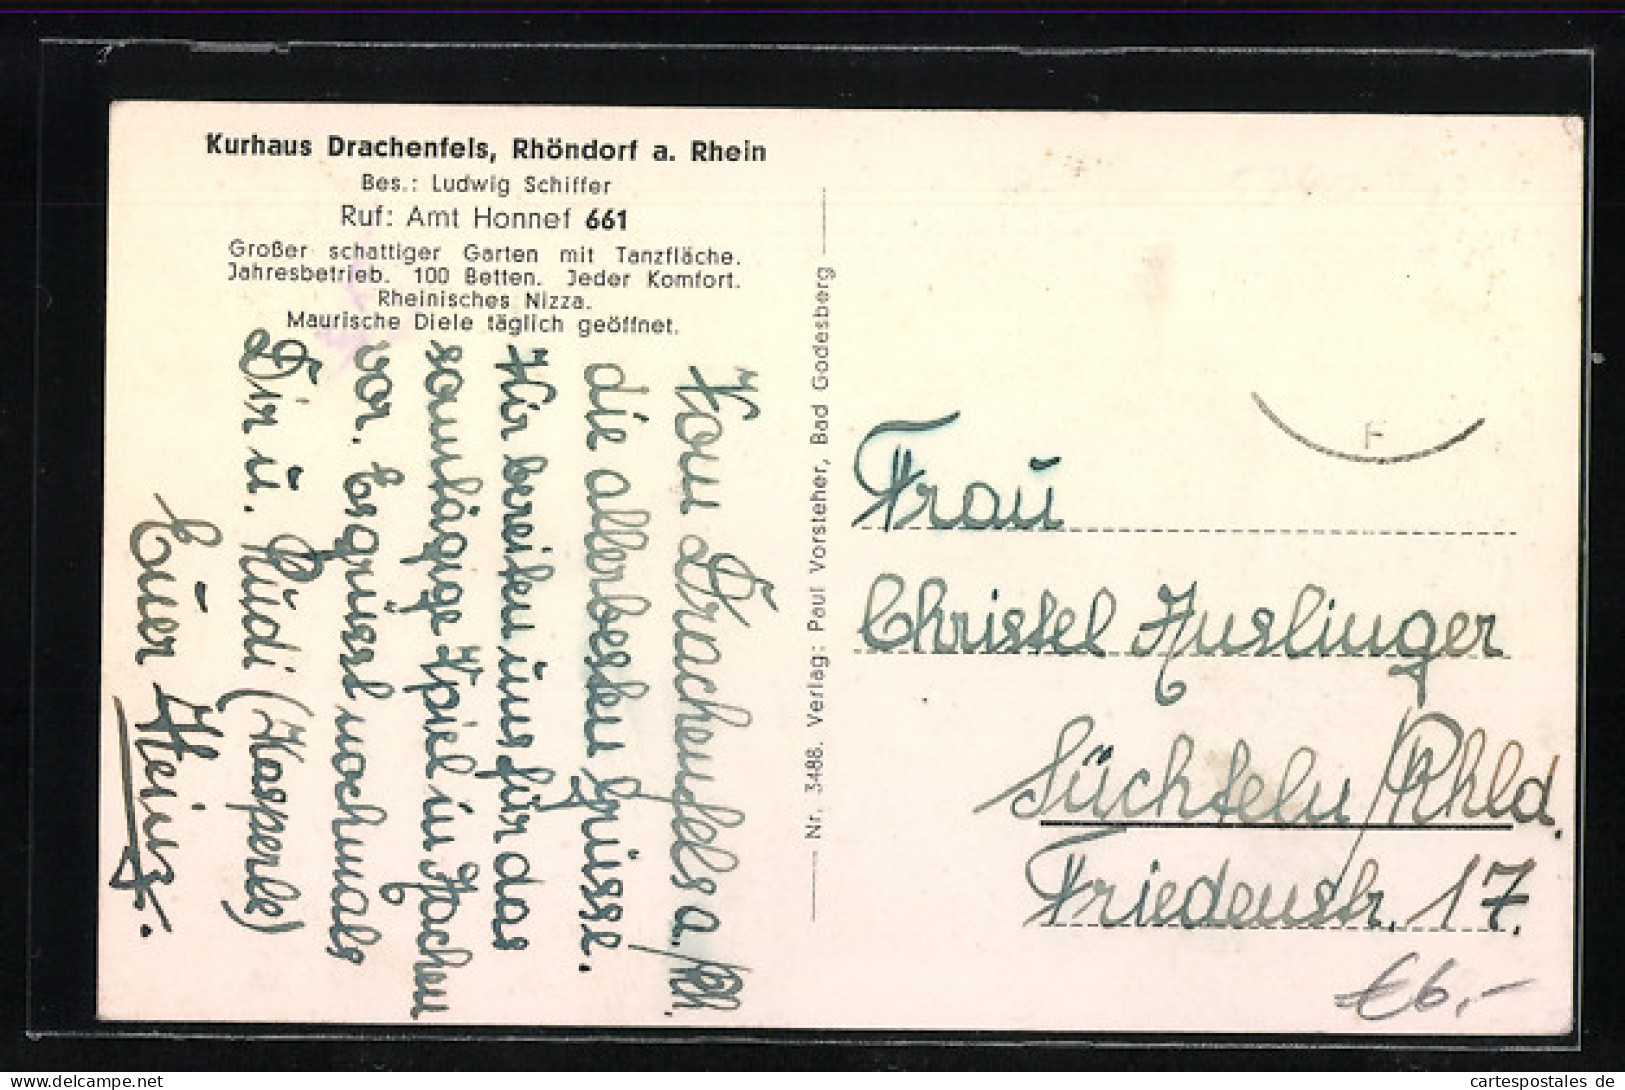 Kurhaus Drachenfels, Rhöndorf a. Rhein
Bes.: Ludwig Schiffer
Ruf: Amt Honnef 661
Großer schattiger Garten mit Tanzfläche.
Jahresbetrieb. 100 Betten. Jeder Komfort.
Rheinisches Nizza.
Maurische Diele täglich geöffnet.
Vom Drachenfels a./Rh.
die allerbesten Grüsse.
Wir bereiten uns für das
sonntägige Spiel in Aachen
vor. Es grüsst nochmals
Dir u. Rudi (Kasperle)
Euer Heinz.
Nr. 3488. Verlag: Paul Vorsteher, Bad Godesberg
F
Frau
Christel Auslinger
Süchteln/Rhld.
Friedenstr. 17.
€6,-
cartespostales de